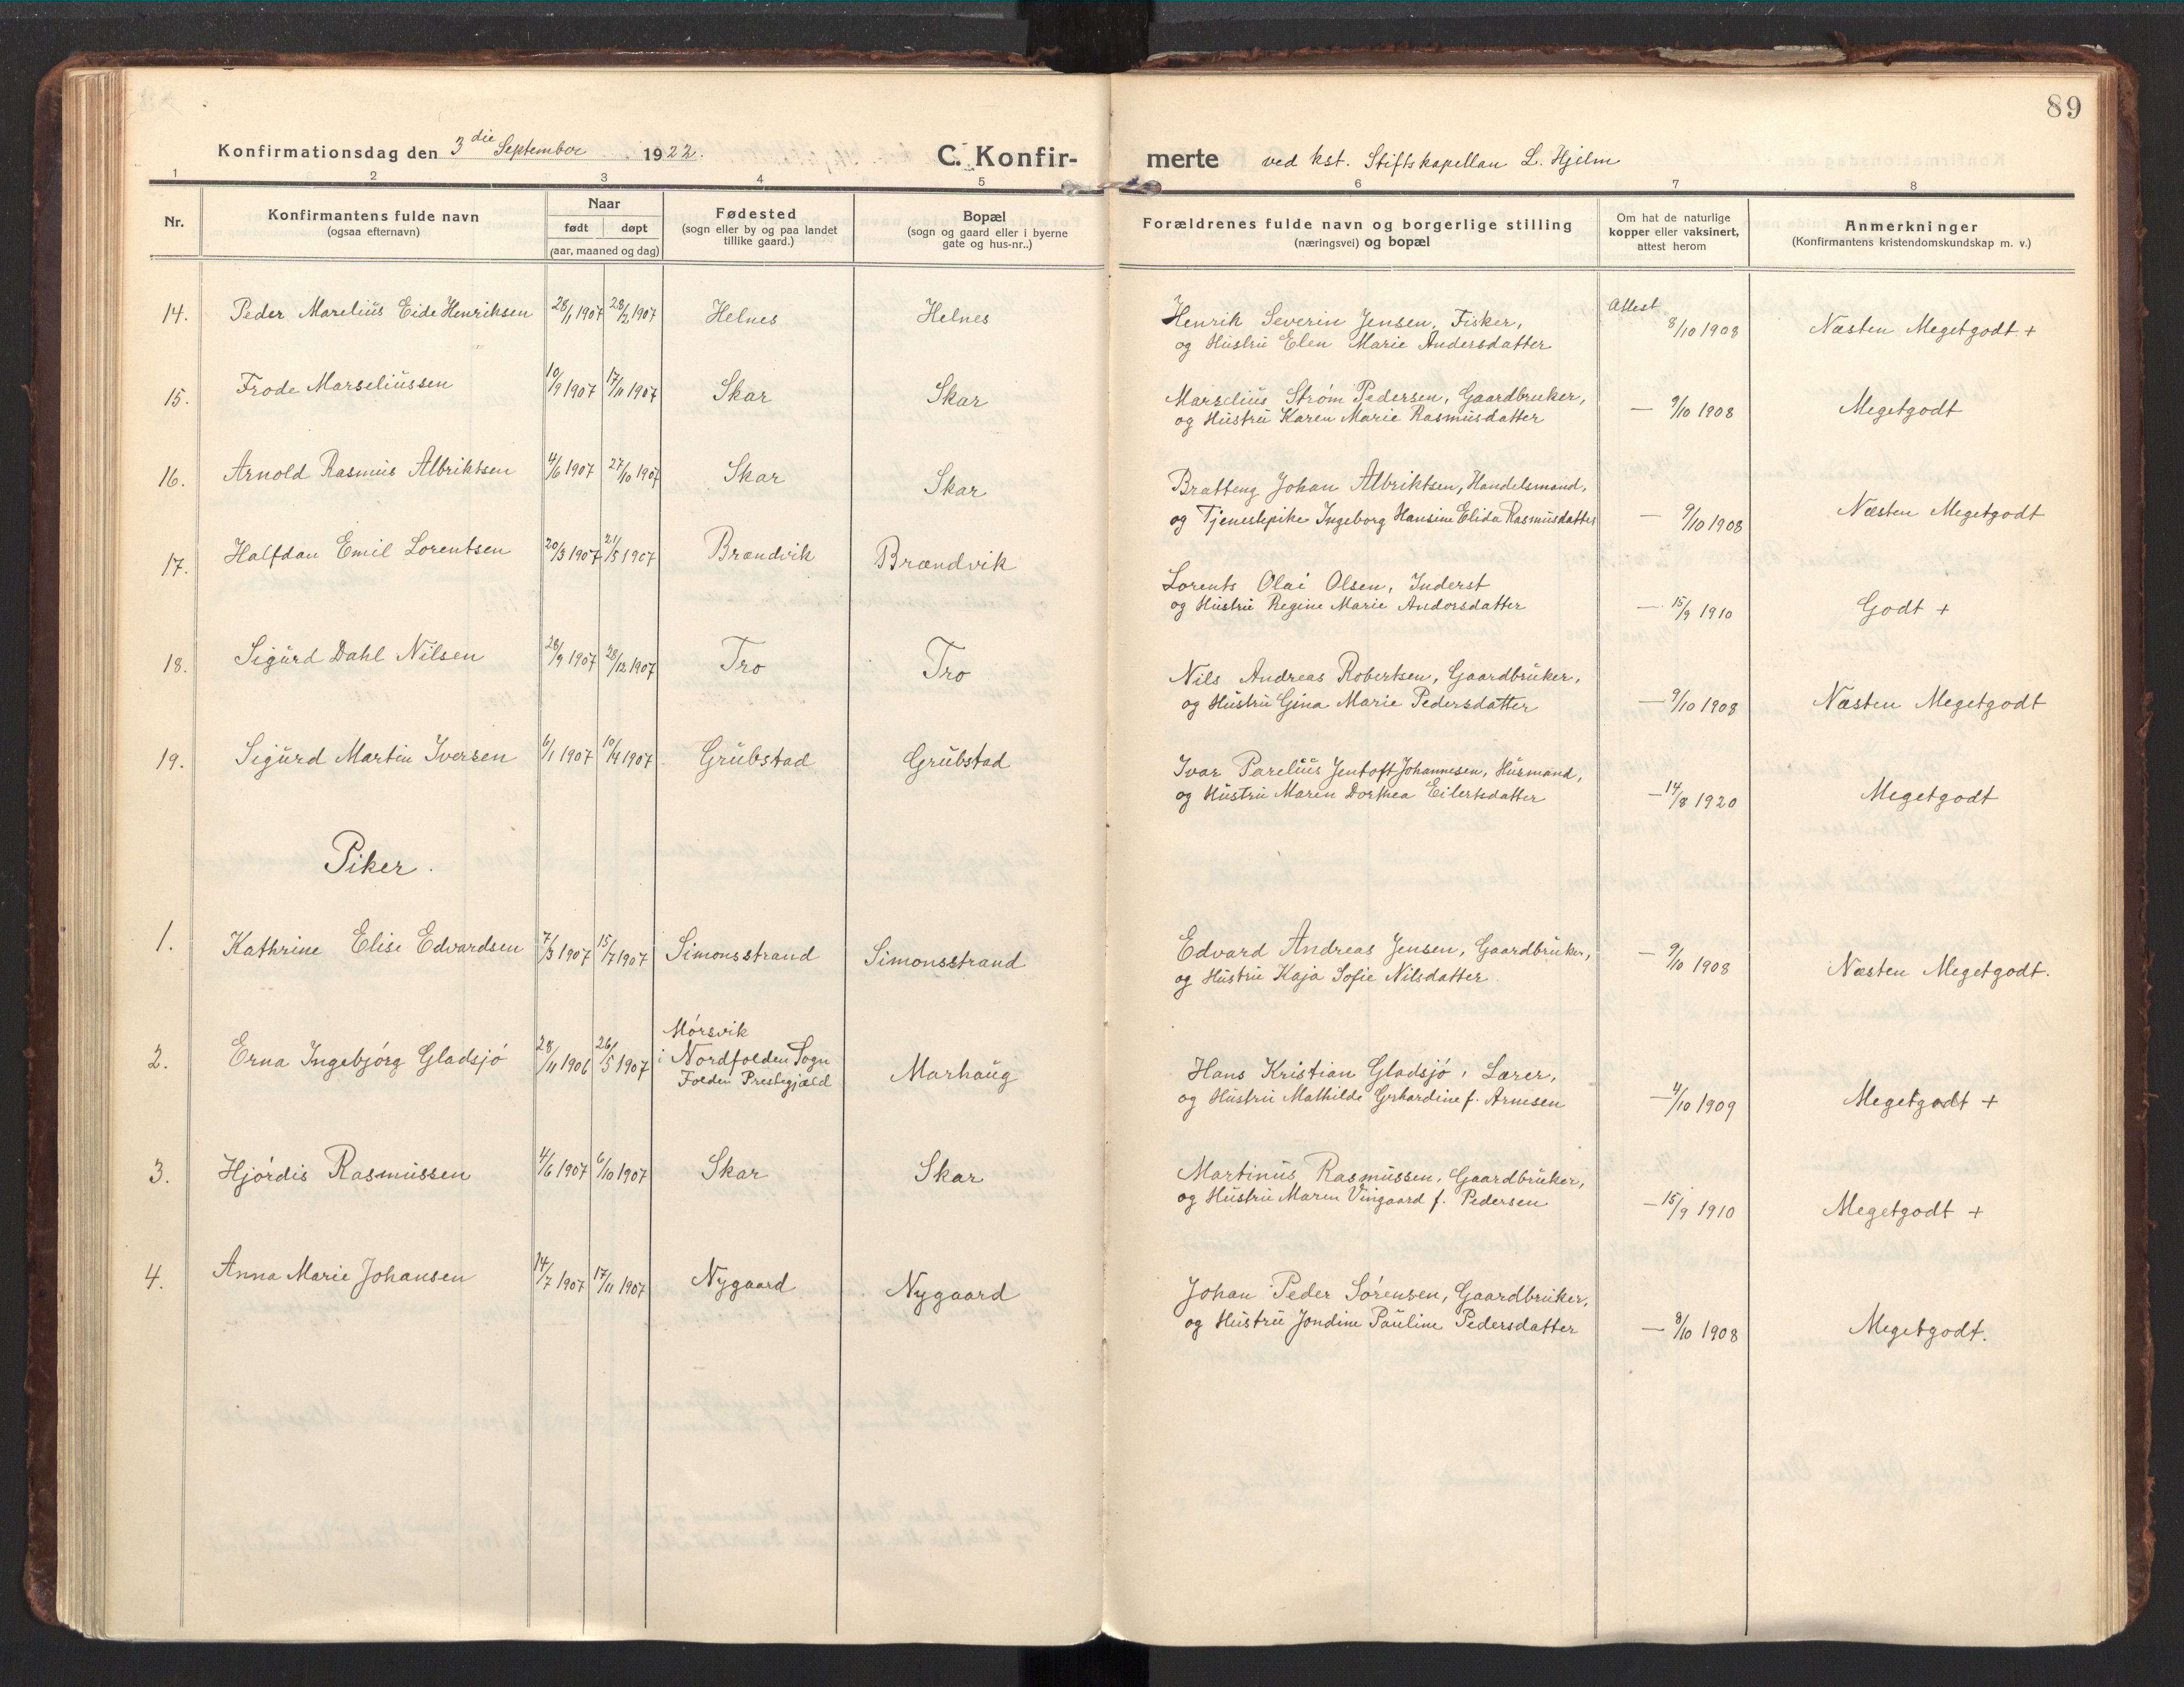 89
Konfirmationsdag den 3die September 1922.
C. Konfir-
merte ved kst. Stiftskapellan L. Hjelm
1 2 3 4 5 6 7 8
Nr.
Konfirmantens fulde navn
(ogsaa efternavn)
Naar
født døpt
(aar, maaned og dag)
Fødested
(sogn eller by og paa landet
tillike gaard.)
Bopæl
(sogn og gaard eller i byerne
gate og hus-nr..)
Forældrenes fulde navn og borgerlige stilling
(næringsvei) og bopæl
Om hat de naturlige
kopper eller vaksinert,
attest herom
Anmerkninger
(Konfirmantens kristendomskundskap m. v.)
14. Peder Marelius Eide Henriksen 28/1 1907 28/2 1907 Helnes Helnes
Henrik Severin Jensen, Fisker,
og Hustru Elen Marie Andersdatter
Attest 8/10 1908 Næsten Megetgodt +
15. Frode Marseliussen 10/9 1907 17/11 1907 Skar Skar
Marselius Strøm Pedersen, Gaardbruker,
og Hustru Karen Marie Rasmusdatter
— 9/10 1908 Megetgodt
16. Arnold Rasmus Albriktsen 4/6 1907 27/10 1907 Skar Skar
Bratteng Johan Albriktsen, Handelsmand,
og Tjenestepike Ingeborg Hansine Elida Rasmusdatter
— 9/10 1908 Næsten Megetgodt
17. Halfdan Emil Lorentsen 20/3 1907 21/5 1907 Brændvik Brændvik
Lorents Olai Olsen, Inderst
og Hustru Regine Marie Andorsdatter
— 15/9 1910 Godt +
18. Sigurd Dahl Nilsen 28/9 1907 28/12 1907 Tro Tro
Nils Andreas Robertsen, Gaardbruker,
og Hustru Gina Marie Pedersdatter
— 9/10 1908 Næsten Megetgodt
19. Sigurd Martin Iversen 6/1 1907 10/4 1907 Grubstad Grubstad
Ivar Parelius Jentoft Johannesen, Husmand,
og Hustru Maren Dorthea Eilertsdatter
— 14/8 1920 Megetgodt
Piker.
1. Kathrine Elise Edvardsen 7/3 1907 15/7 1907 Simonsstrand Simonsstrand
Edvard Andreas Jensen, Gaardbruker,
og Hustru Kaja Sofie Nilsdatter.
— 9/10 1908 Næsten Megetgodt.
2. Erna Ingebjørg Gladsjø 28/11 1906 26/5 1907 Mørsvik
i Nordfolden Sogn
Folden Prestegjæld
Marhaug
Hans Kristian Gladsjø, Lærer,
og Hustru Mathilde Gerhardine f. Arnesen
— 4/10 1909 Megetgodt +
3. Hjørdis Rasmussen 4/6 1907 6/10 1907 Skar Skar
Martinus Rasmussen, Gaardbruker,
og Hustru Maren Vingaard f. Pedersen
— 15/9 1910 Megetgodt +
4. Anna Marie Johansen 14/7 1907 17/11 1907 Nygaard Nygaard
Johan Peder Sørensen, Gaardbruker,
og Hustru Jondine Pauline Pedersdatter
— 8/10 1908 Megetgodt.